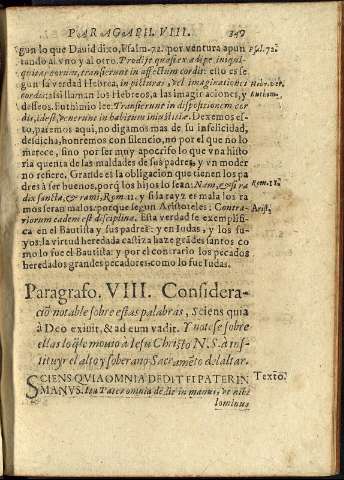 PARAGAPH. VIII. 349
gun lo que Dauid dixo, Psalm. 72. por ventura apun Psal. 72.
tando al vno y al otro. Prodijt quasi ex adipe iniqui-
quitas eorum, transierunt in affectum cordis: esto es se
gun la verdad Hebrea, in picturas, vel imaginationes Hebr. ver.
cordis: assi llaman los Hebreos, a las imaginaciones, y Euthim.
desseos. Euthimio lee. Transierunt in dispositionem cor
dis, id est, venerunt in habitum iniustitia. Dexemos es-
to, paremos aqui, no digamos mas de su infelicidad,
desdicha, honremos con silencio, no por el que no lo
merece, sino por ser muy apocrifo lo que vna histo
ria quenta de las maldades de sus padres, y vn moder
no refiere. Grande es la obligacion que tienen los pa
dres à ser buenos, porq̃ los hijos lo sean: Nam, & si ra Rom. 11.
dix sancta, & rami, Rom. 11. y si la rayz es mala los ra
mos seran malos: porque segun Aristoteles: Contra- Arist.
riorum eadem est disciplina. Esta verdad se exemplifi
ca en el Bautista y sus padres: y en Iudas, y los su-
yos: la virtud heredada castiza haze grãdes santos co
mo lo fue el Bautista: y por el contrario los pecados
heredados grandes pecadores, como lo fue Iudas.
Paragrafo. VIII. Considera-
ciõ notable sobre estas palabras, Sciens quia
à Deo exiuit, & ad eum vadit. Y notese sobre
ellas lo q̃ le mouio à Iesu Christo N. S. à ins-
tituyr el alto y soberano Sacramẽto del altar.
SCIENS QVIA OMNIA DEDIT EI PATER IN Texto.
MANVS. Su Pater omnia dedit in manus, & nihil
lominus